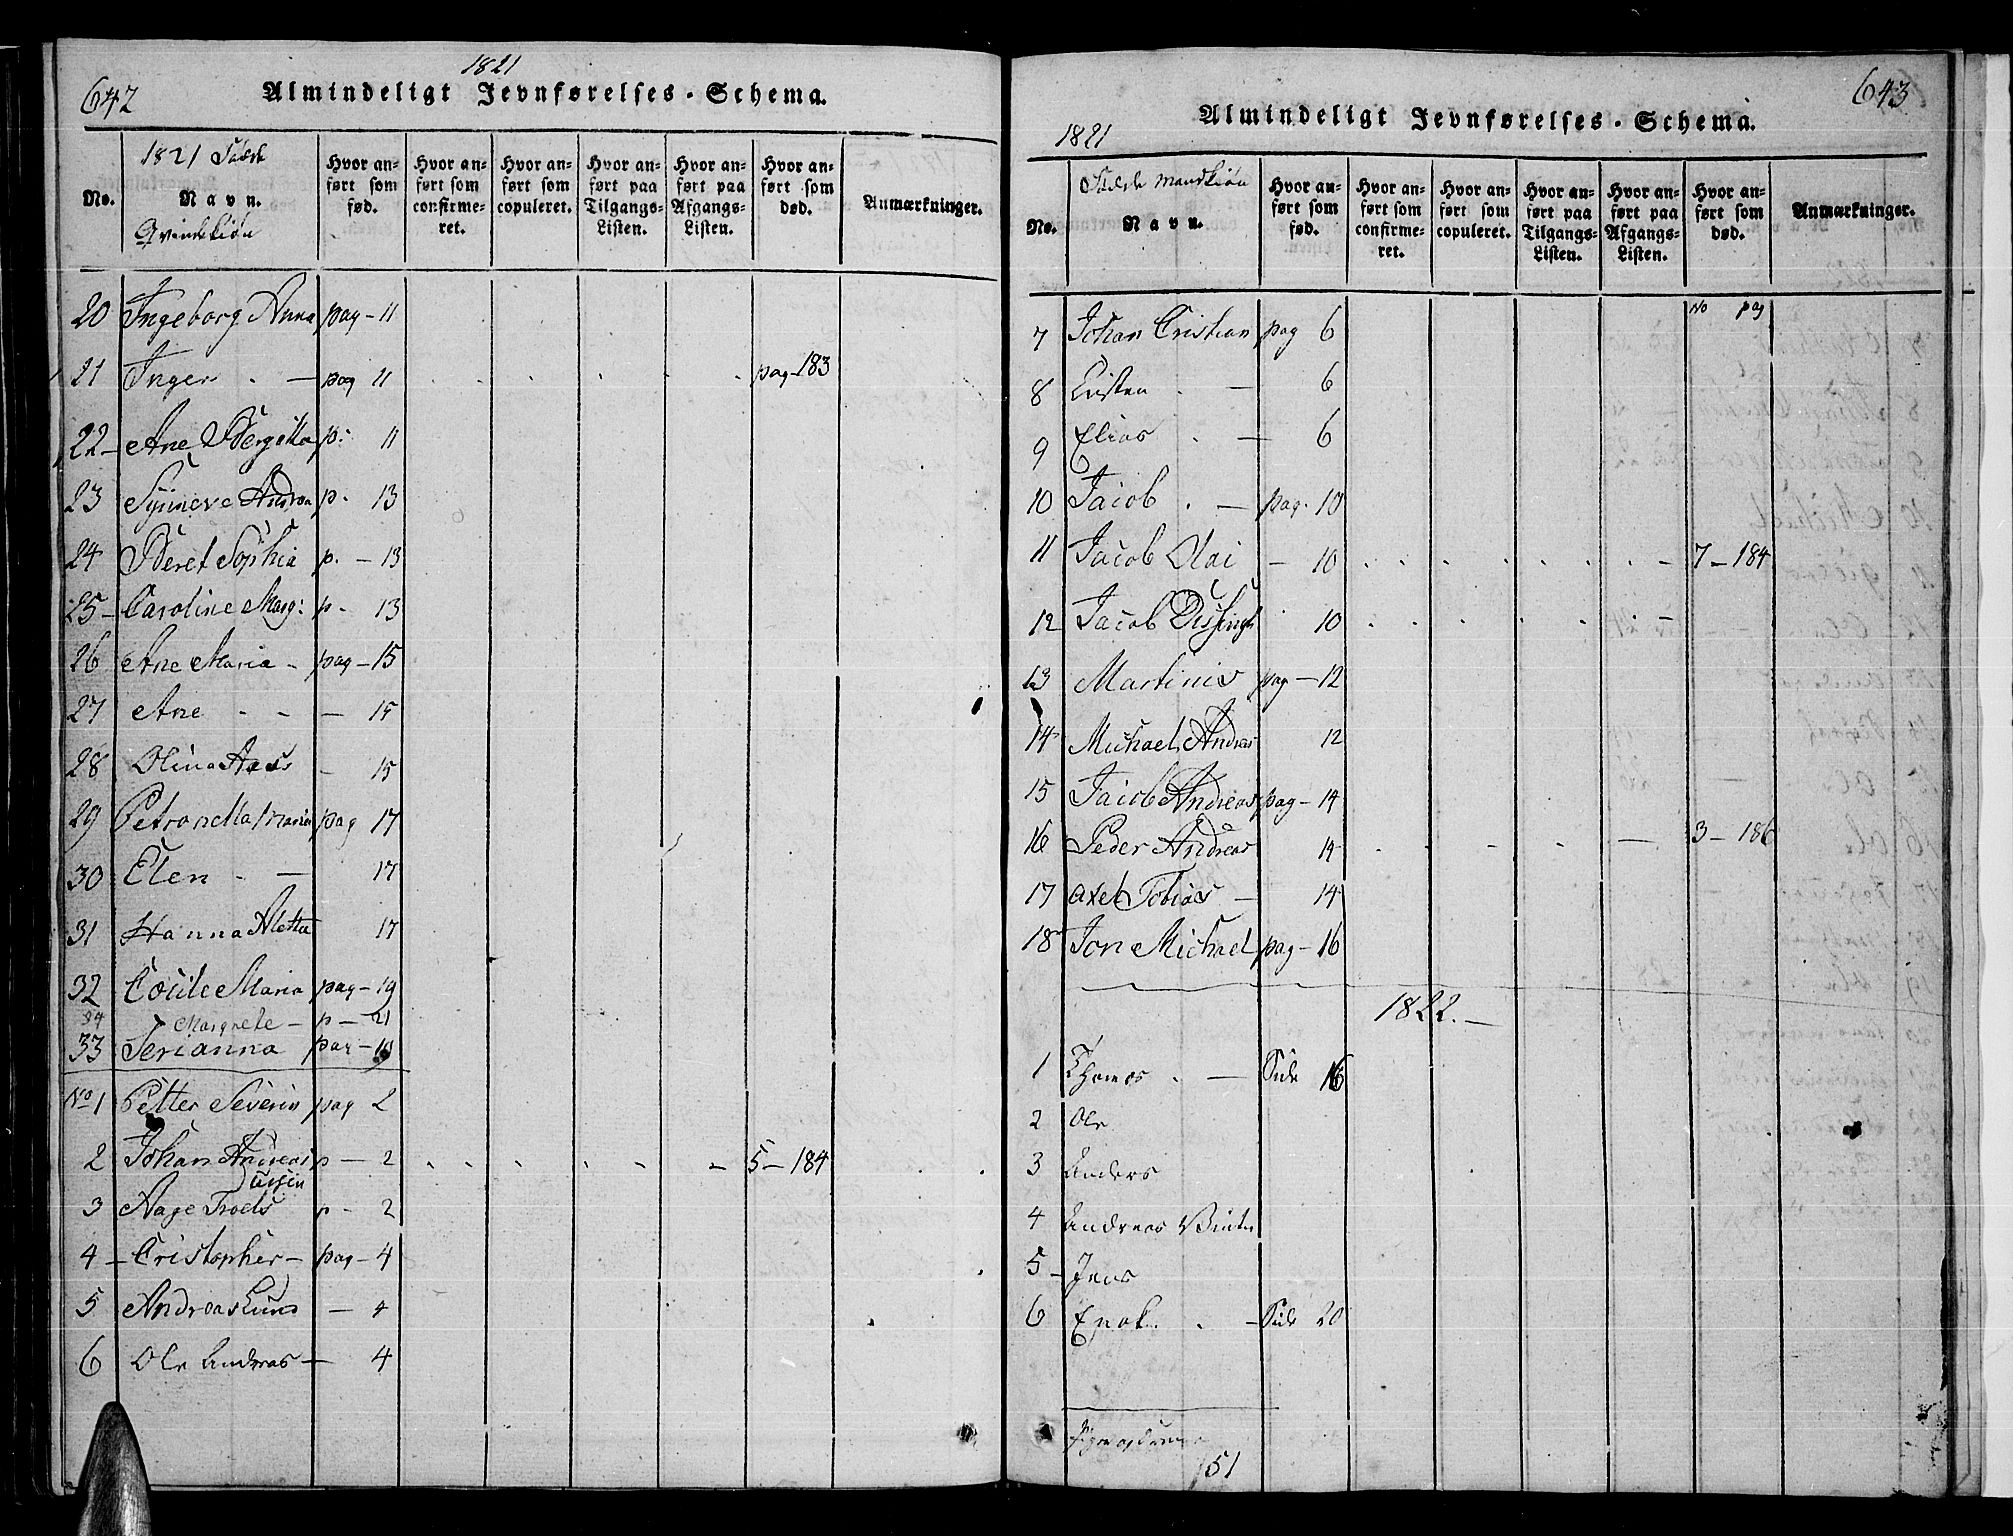 642
1821
Almindeligt Jevnførelses-Schema.
No.
1821
Navn.
Qvindekiøn
Hvor anført som fød.
Hvor anført som confirmeret.
Hvor anført som copuleret.
Hvor anført paa Tilgangs-Listen.
Hvor anført paa Afgangs-Listen.
Hvor anført som død.
Anmærkninger.
20 Ingeborg Anna pag - 11
21 Inger . — pag 11 pag - 183
22 - Ane Bergitta p: 11
23 Synneve Andrea p. 13
24 Beret Sophia p. - 13
25 - Caroline Marg: p - 13
26 Ane Maria - pag - 15
27 Ane - - — 15
28 Olina - 15
29 Petronella Maria pag 17
30 Elen - — 17
31 Hanna Aletta 17
32 Cecile Maria pag - 19
34 Margrete - p - 21
33 Serianna pag - 19
No 1 Petter Severin pag 2
2 Johan Andreas p — 2 5 - 184
3 Aage Troels p - 2
4 - Cristopher - pag - 4
5 Andreas Lund — 4
6 Ole Andreas — 4
643
1821
Almindeligt Jevnførelses-Schema.
No.
Mandkiøn
Navn.
Hvor anført som fød.
Hvor anført som confirmeret.
Hvor anført som copuleret.
Hvor anført paa Tilgangs-Listen.
Hvor anført paa Afgangs-Listen.
Hvor anført som død.
Anmærkninger.
No pag
7 Johan Cristian pag 6
8 Cristen . — 6
9 Elias . — 6
10 Jacob . — pag. 10
11 Jacob Olai — 10 7 - 184
12 Jacob 10
13 Martinis pag - 12
14 Michael Andreas 12
15 Jacob Andreas pag - 14
16 Peder Andreas 14 3 - 186
17 Axel Tobias — 14
18 Jon Michael pag - 16
1822. —
1 Thomas . — Side 16
2 Ole
3 Anders
4 Andreas Winter
5 - Jens
6 Enok . - Side 20
51